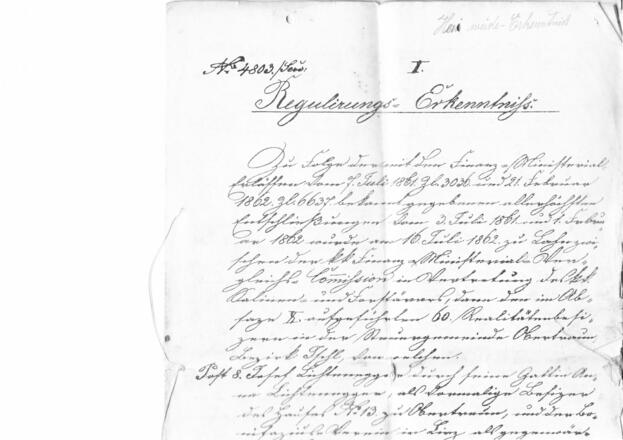 Heimweide-Erkenntniß
No 4803./Serv:
I.
Regulirungs-Erkenntniß.
Zu Folge der mit den Finanz-Ministerial-
Erlässen vom 7. Juli 1861. Zl. 3036. und 21. Februar
1862. Zl. 6637. bekannt gegebenen allerhöchsten
Entschließungen vom 3. Juli 1861. und 1. Febru-
ar 1862 wurde am 16 Juli 1862. zu Lahn zwi-
schen der kk Finanz-Ministerial-Ver-
gleichs-Commission in Vertretung des kk.
Salinen- und Forstärars, dann den in Ab-
saze V. aufgeführten 60. Realitätenbesi-
zern in der Steuergemeinde Obertraun
Bezirk Ischl, von welchen.
Post 8. Josef Lichtenegger durch seine Gattin An-
na Lichtenegger, als vormalige Besizer
des Hauses No 13. zu Obertraun, und der Bo-
nifazius Verein in Linz als gegenwär-